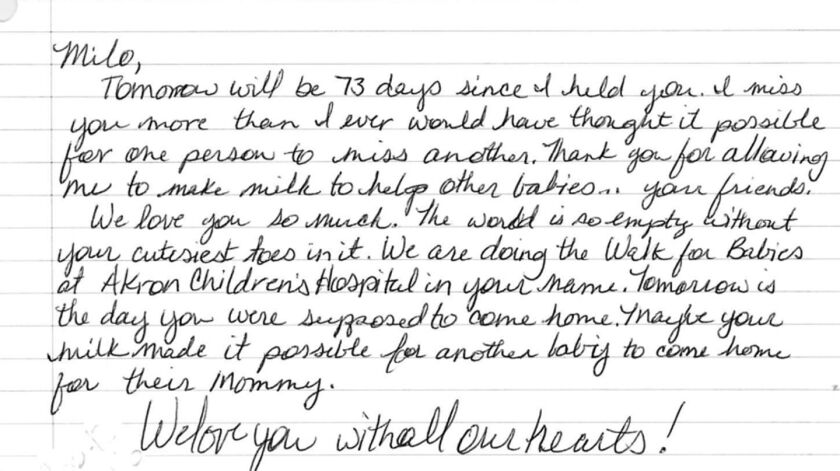 Milo,
Tomorrow will be 73 days since I held you. I miss
you more than I ever would have thought it possible
for one person to miss another. Thank you for allowing
me to make milk to help other babies... your friends.
We love you so much. The world is so empty without
your cutesiest toes in it. We are doing the Walk for Babies
at Akron Children's Hospital in your name. Tomorrow is
the day you were supposed to come home. Maybe your
milk made it possible for another baby to come home
for their Mommy.
We love you with all our hearts!